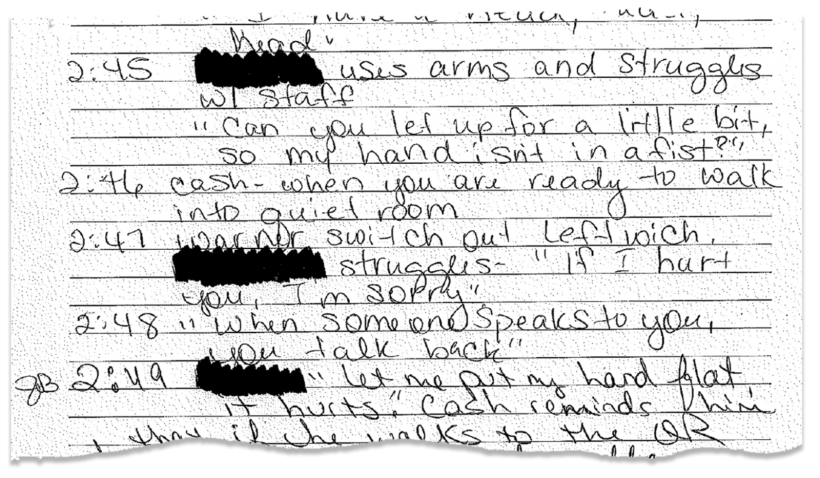 Head.
2:45 uses arms and struggles
w/ staff
"Can you let up for a little bit,
so my hand isn't in a fist?"
2:46 cash- when you are ready to walk
into quiet room
2:47 warner switch out Leftwich.
struggles- "If I hurt
you, I'm sorry"
2:48 "when someone speaks to you,
you talk back"
JB 2:49 "let me put my hand flat
it hurts." Cash reminds him
that if he walks to the QR